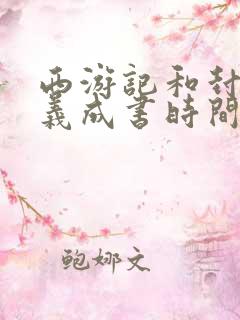 西游記和封
義成書時間
鲍娜文